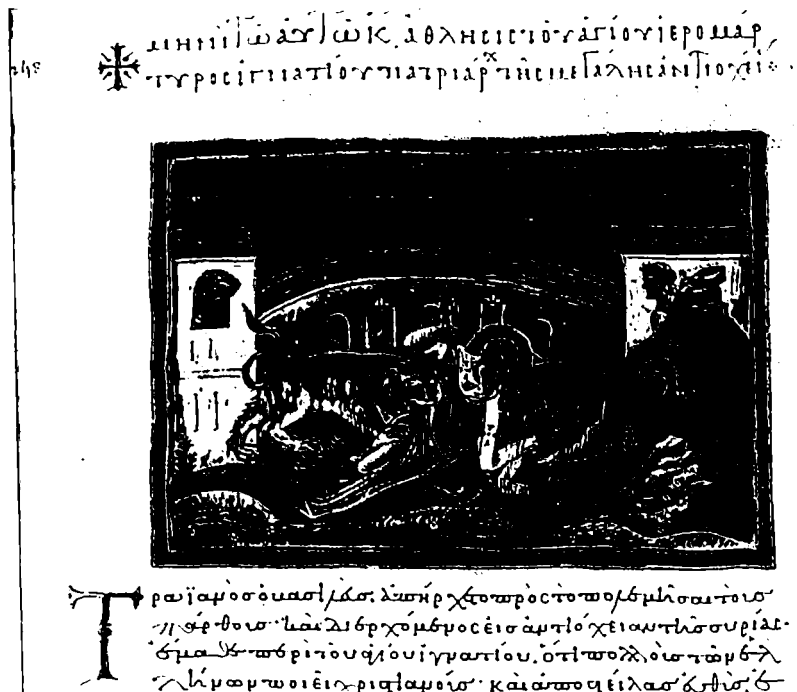 ΜΗΝΙ ΤΩ ΑΥΤΩ Κ. ἄθλησις τοῦ ἁγίου ἱερομάρ
τυρος ἰγνατίου πατριάρχ τῆς μεγάλης ἀντιοχεί
Τραϊανὸς ὁ βασιλεὺς. ἀπήρχετο πρὸς τὸ πολεμῆσαι τοῖς
πάρθοις· καὶ διερχόμενος εἰς ἀντιόχειαν τῆς συρίας·
ἔμαθε περὶ τοῦ ἁγίου ἰγνατίου. ὅτι πολλοὺς τῶν ἑλ
λήνων ποιεῖ χριστιανούς· καὶ ἀποστείλας